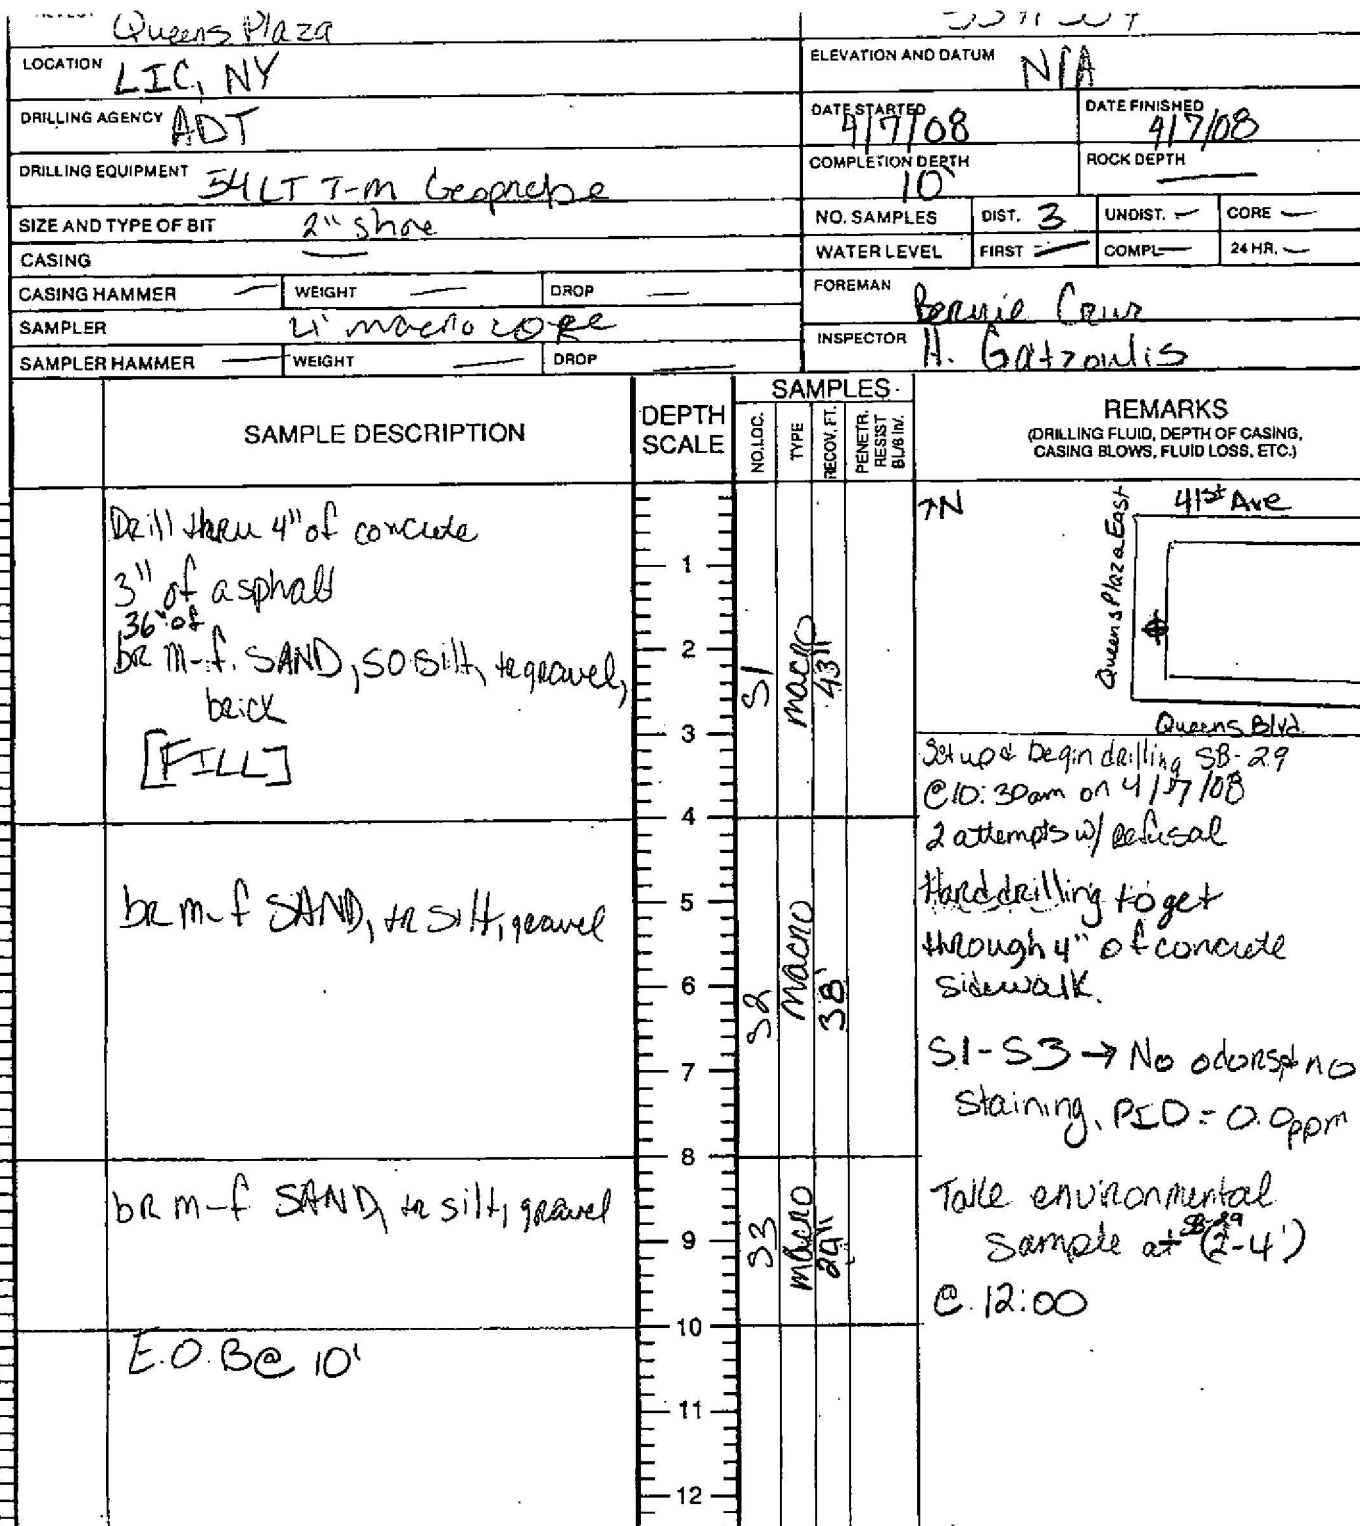 Queens Plaza
LOCATION LIC, NY
ELEVATION AND DATUM N/A
DRILLING AGENCY ADT
DATE STARTED 4/7/08
DATE FINISHED 4/7/08
DRILLING EQUIPMENT 54LT T-M Geoprobe
COMPLETION DEPTH 10'
ROCK DEPTH —
SIZE AND TYPE OF BIT 2" shoe
NO. SAMPLES DIST. 3 UNDIST. — CORE —
CASING —
WATER LEVEL FIRST — COMPL — 24 HR. —
CASING HAMMER — WEIGHT — DROP —
FOREMAN Bernie Cruz
SAMPLER 4' macro core
INSPECTOR H. Gatzoulis
SAMPLER HAMMER — WEIGHT — DROP —
SAMPLE DESCRIPTION
DEPTH SCALE
SAMPLES
NO.LOC.
TYPE
RECOV. FT.
PENETR. RESIST BL/6 IN.
REMARKS
(DRILLING FLUID, DEPTH OF CASING,
CASING BLOWS, FLUID LOSS, ETC.)
Drill thru 4" of concrete
3" of asphalt
36" of
br m-f. SAND, so silt, tr gravel,
brick
[FILL]
br m-f SAND, tr silt, gravel
br m-f SAND, tr silt, gravel
E.O.B @ 10'
1
2
3
4
5
6
7
8
9
10
11
12
S1 macro 43"
S2 macro 38"
S3 macro 24"
↑N
41st Ave
Queens Plaza East
Queens Blvd.
Set up & begin drilling SB-29
@ 10:30am on 4/7/08
2 attempts w/ refusal
Hard drilling to get
through 4" of concrete
sidewalk.
S1-S3 → No odors, no
staining, PID = 0.0ppm
Take environmental
SB-29
sample at (2-4')
@ 12:00